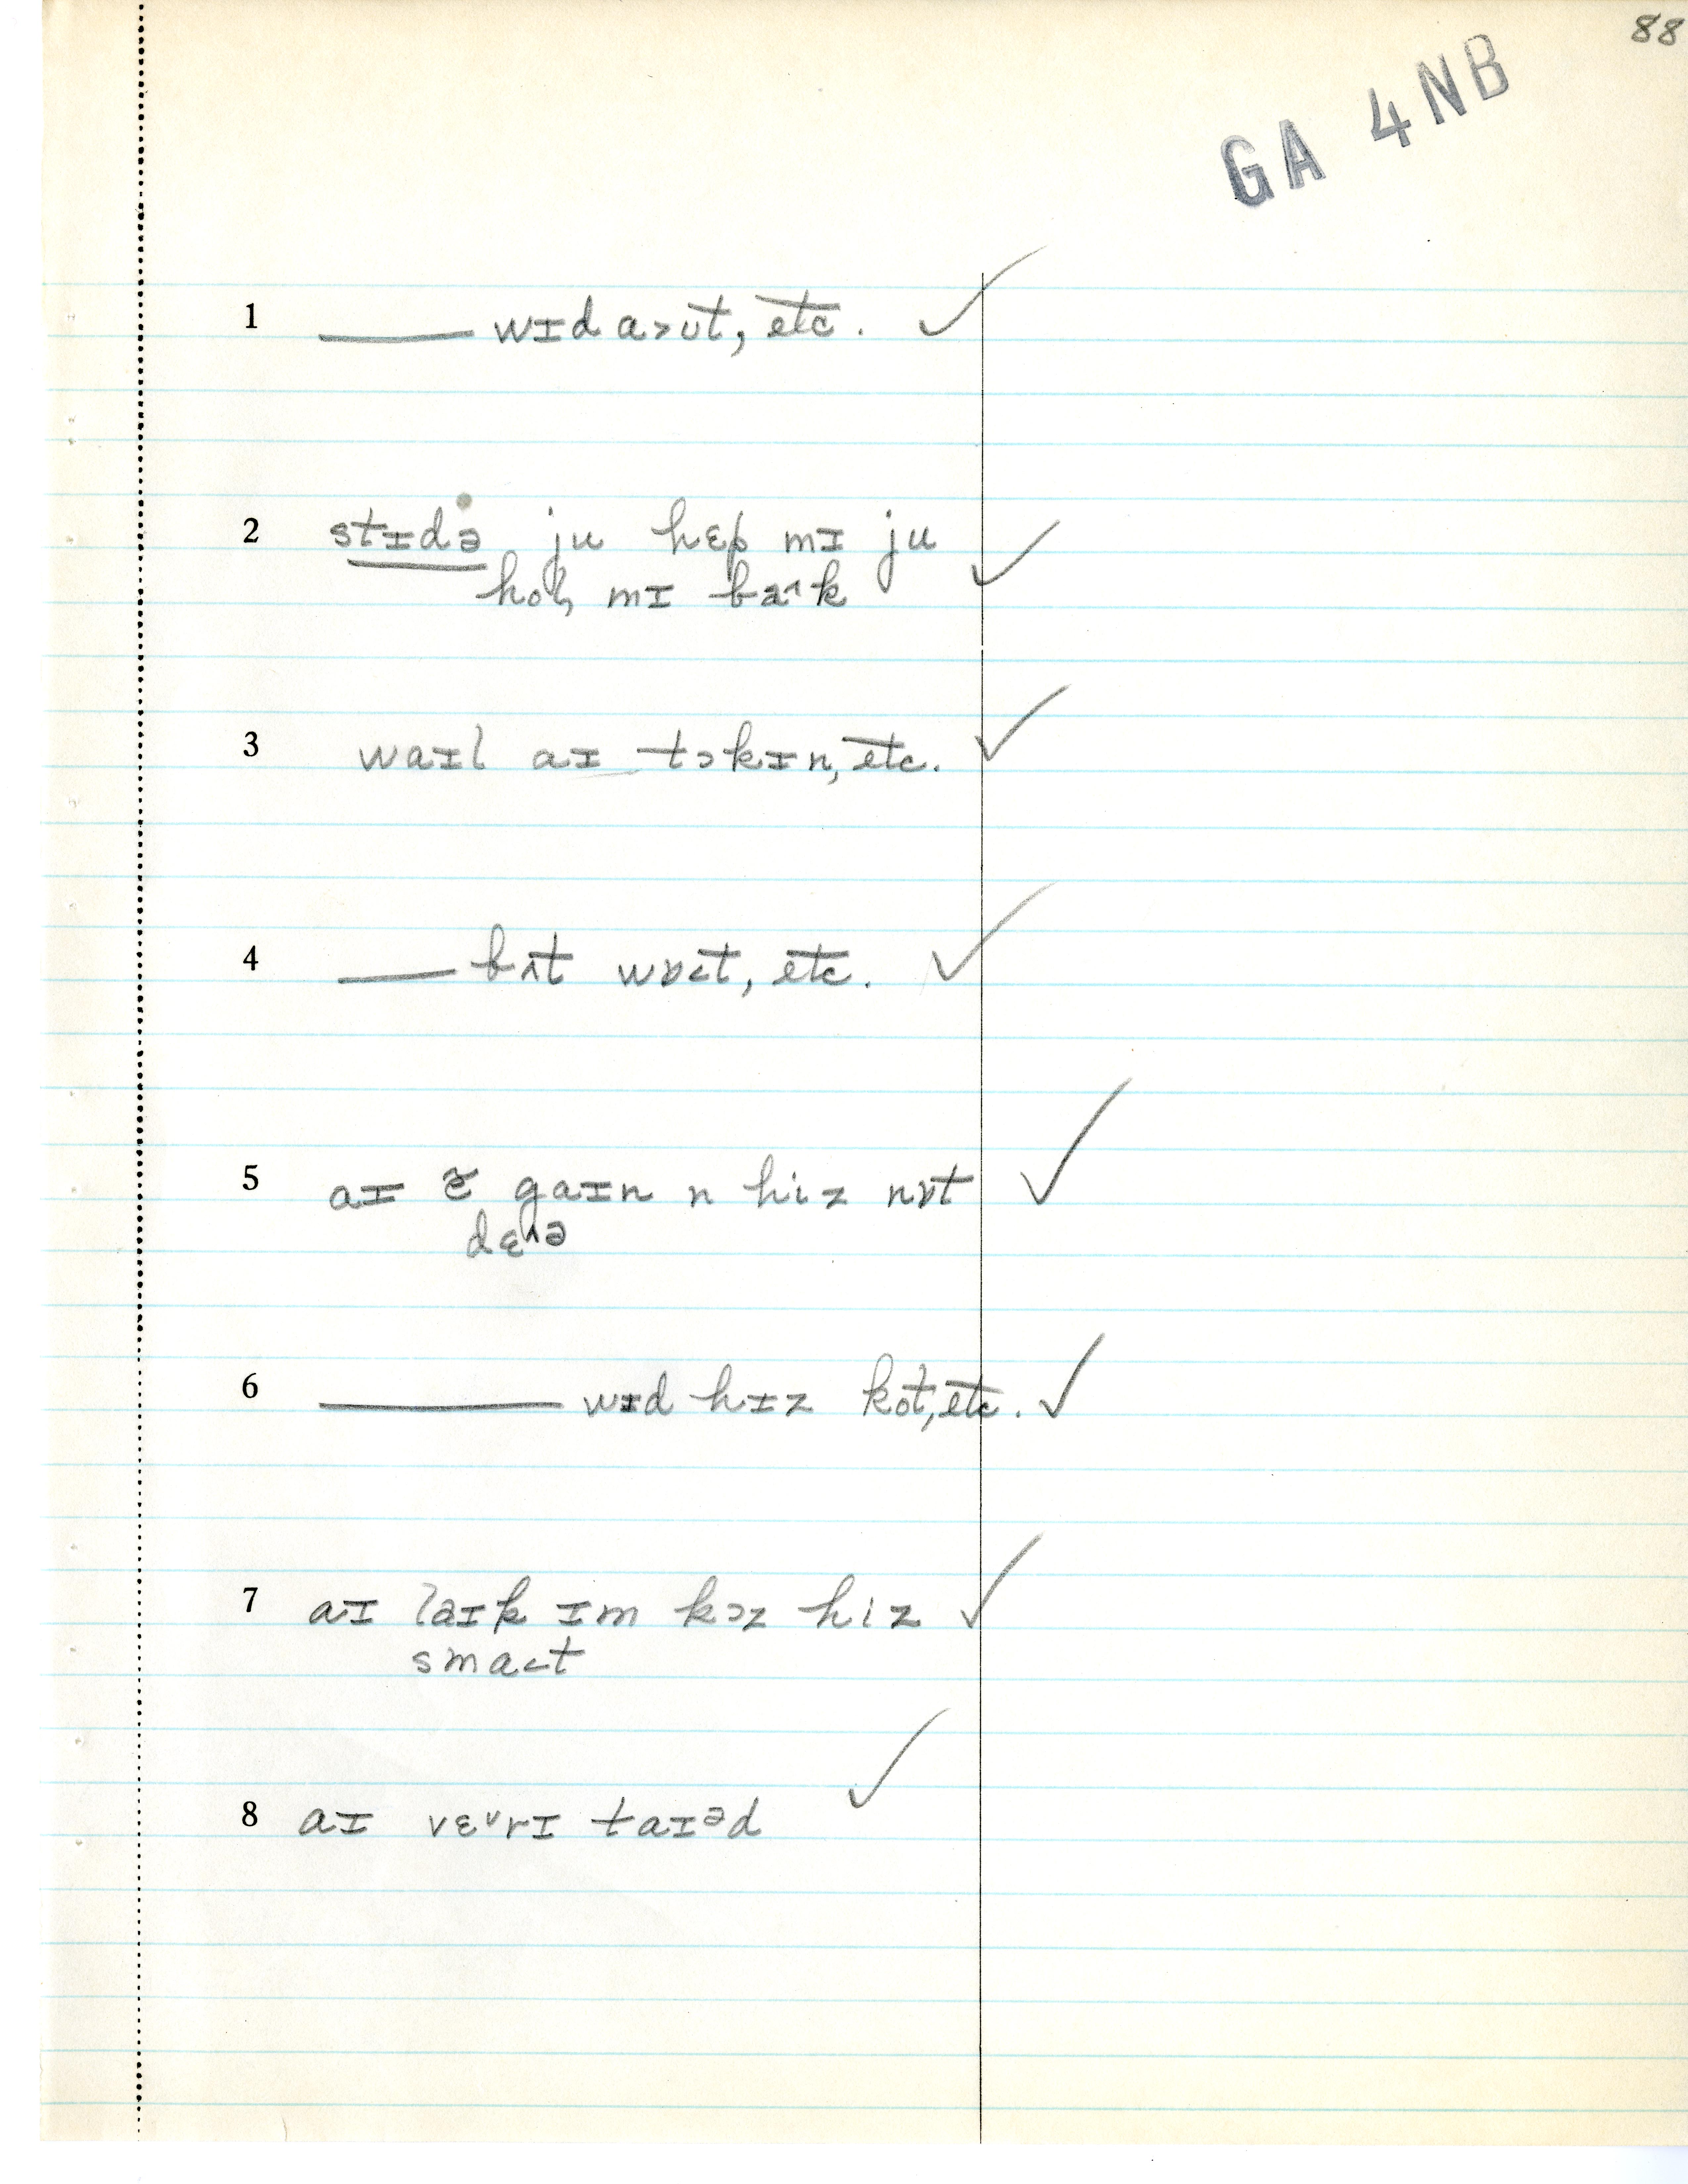 88
GA 4NB
1 ____ wɪd a˃ʊt, etc. ✓
2 stɪdə ju hɛp mɪ ju ✓
hol mɪ ba^k
3 waɪl aɪ tɔkɪn, etc. ✓
4 ____ bʌt wɒ˂t, etc. ✓
5 aɪ gaɪn n hiz nɒt ✓
dɛ^ə
6 ____ wɪd hɪz kot, etc. ✓
7 aɪ laɪk ɪm kɔz hiz ✓
sma˂t
8 aɪ vɛᵛrɪ taɪᵊd ✓